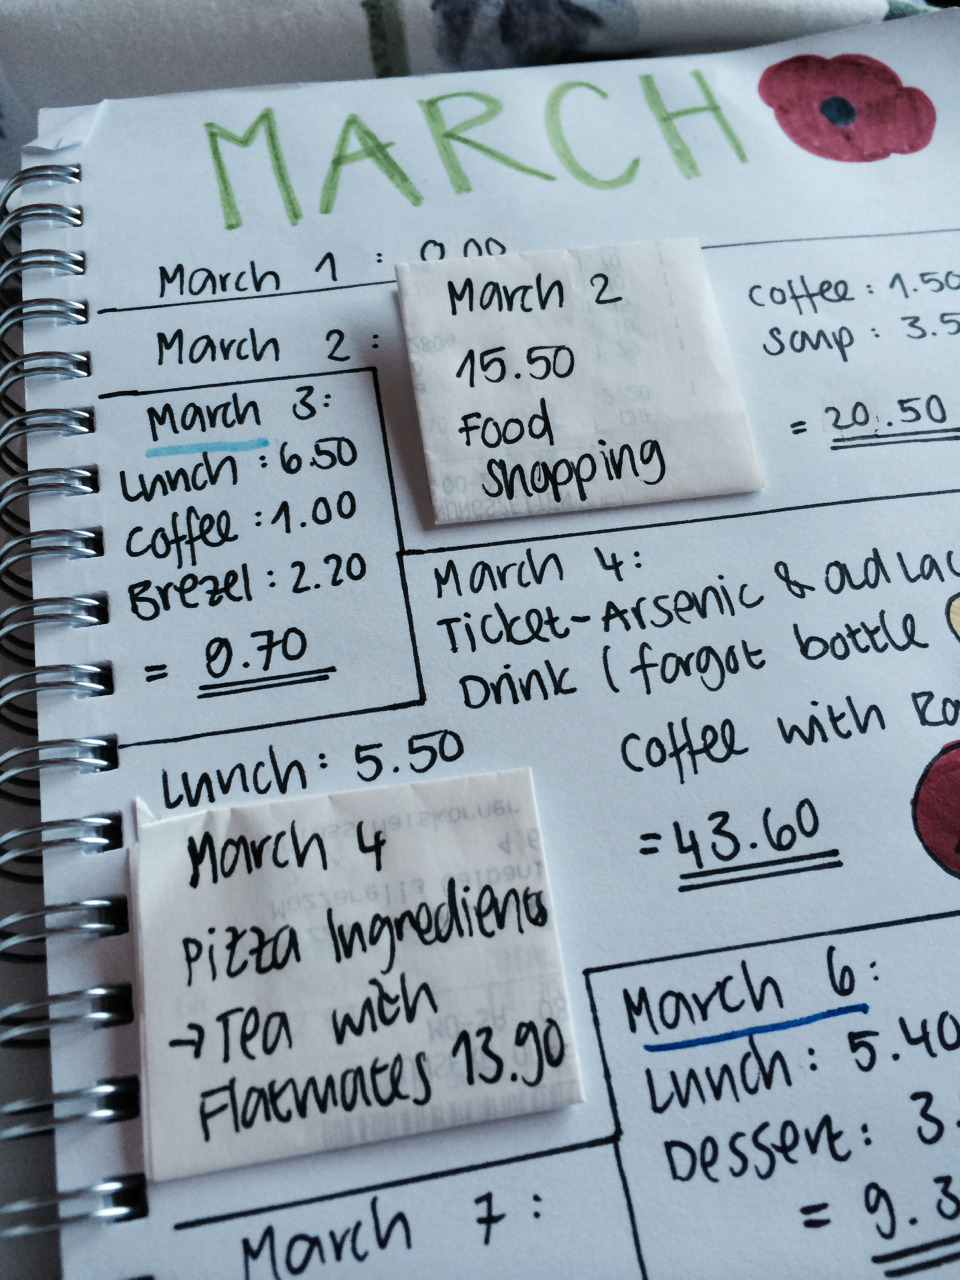 MARCH
March 1 : 0.00
March 2 :
March 2
15.50
Food
shopping
coffee : 1.50
soup : 3.5
= 20.50
March 3:
Lunch : 6.50
coffee : 1.00
Brezel : 2.20
= 9.70
March 4:
Ticket-Arsenic & ad Lac
Drink (forgot bottle
coffee with Ro
Lunch: 5.50
= 43.60
March 4
Pizza Ingredients
→ Tea with
Flatmates 13.90
March 6:
Lunch: 5.40
Dessert: 3.
= 9.3
March 7 :